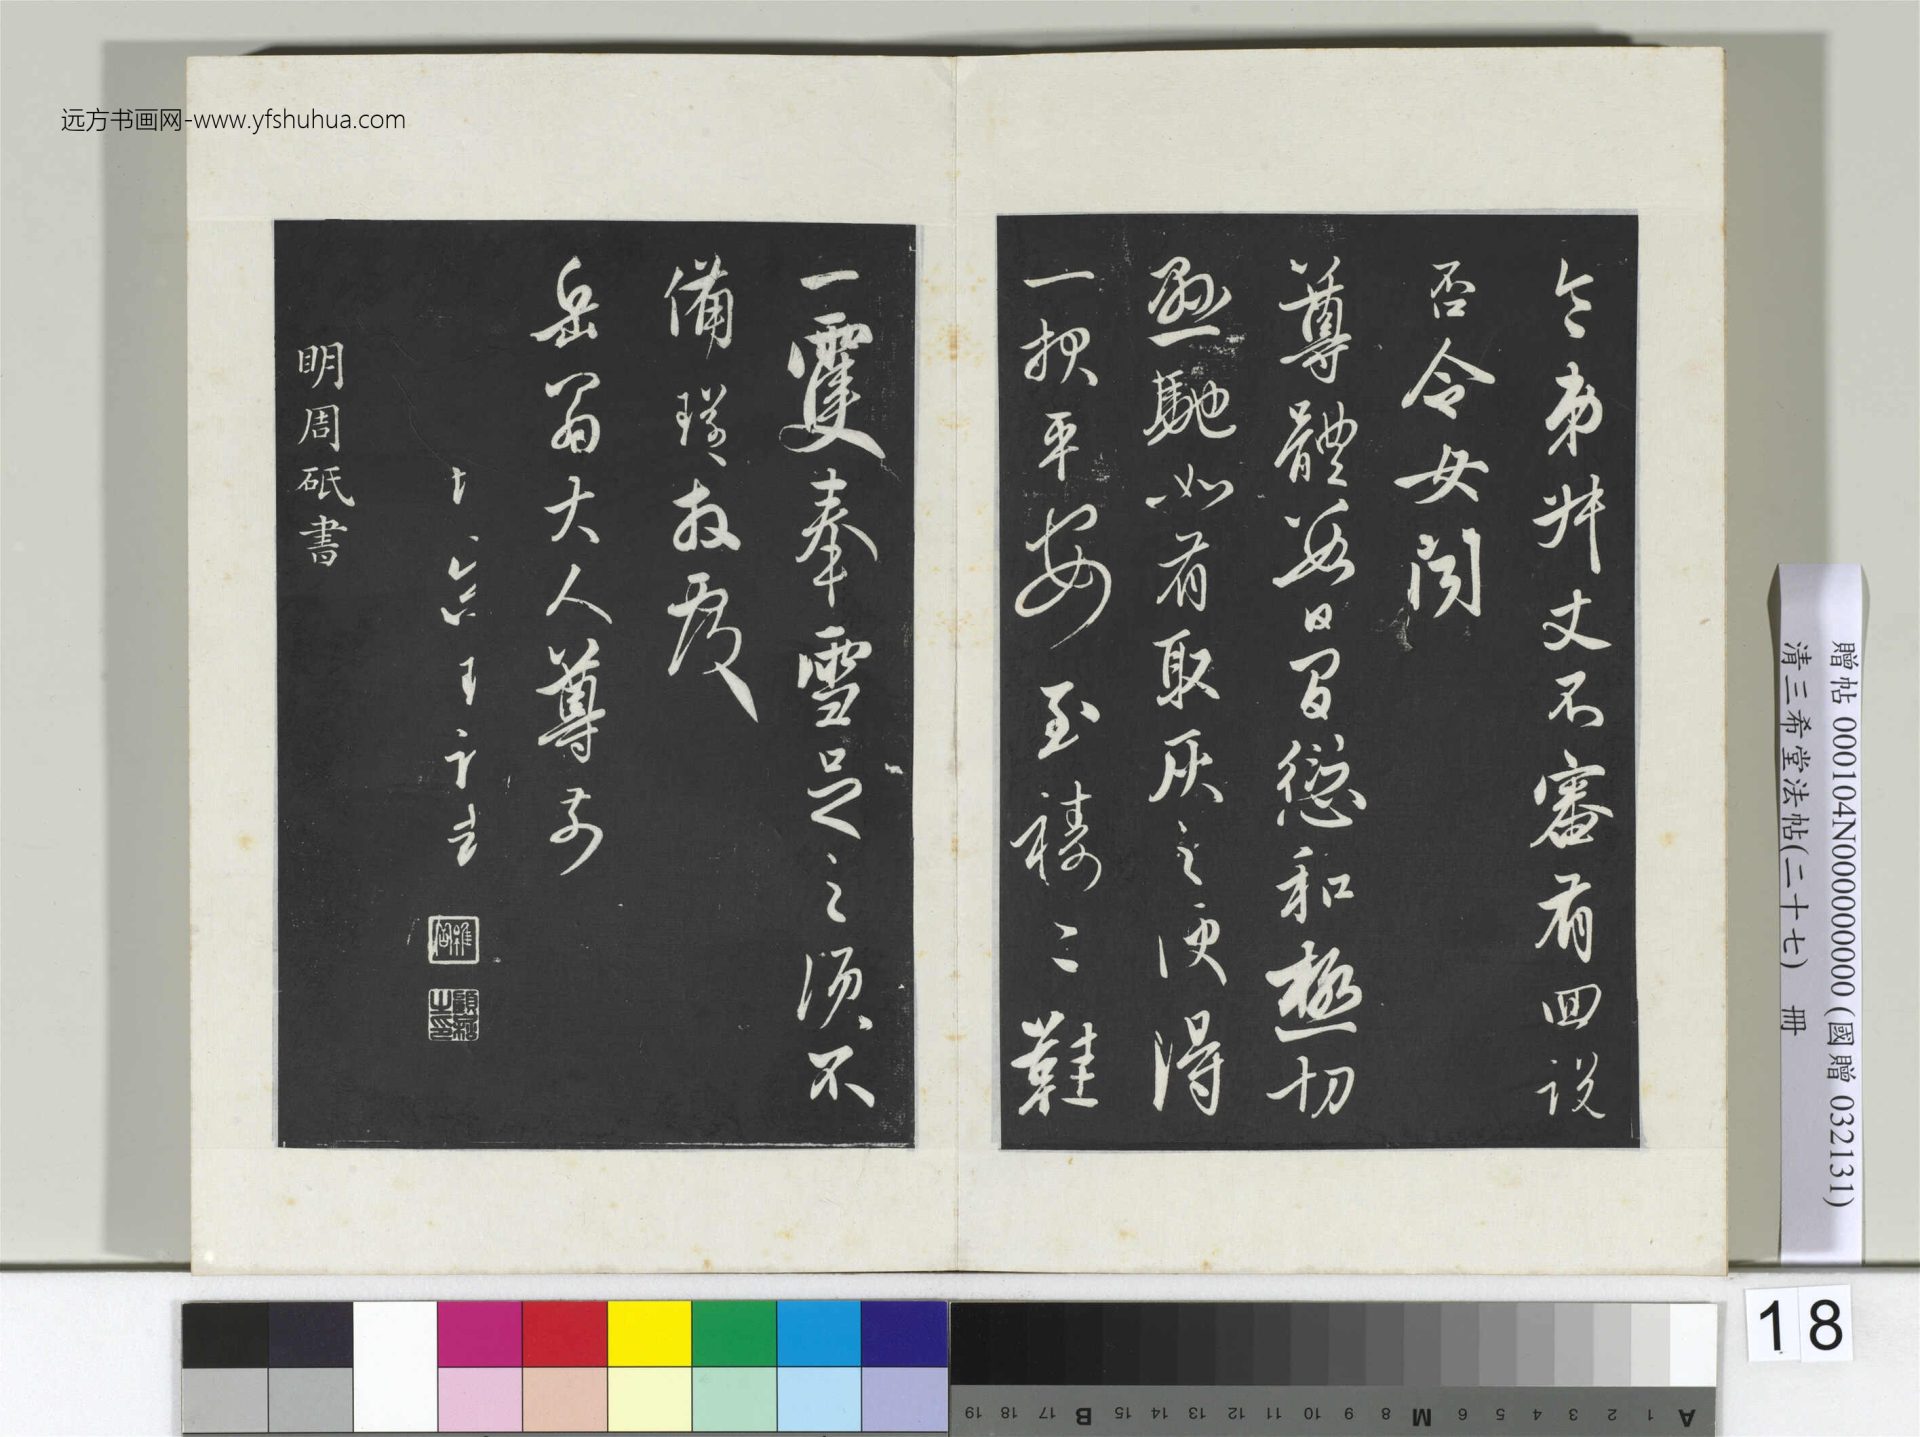 远方书画网-www.yfshuhua.com
令弟州丈不審有回說
否令女閔
尊體每日間愆和極切
懸馳如有取灰之便得
一報平安至禱〻鞋
一雙奉雪足之須不
備瑾放覆
岳翁大人尊前
十六
明周砥書
贈帖 000104N000000000 (國贈 032131)
清三希堂法帖(二十七) 冊
18
A 1 2 3 4 5 6 M 8 9 10 11 12 13 14 15 B 17 18 19